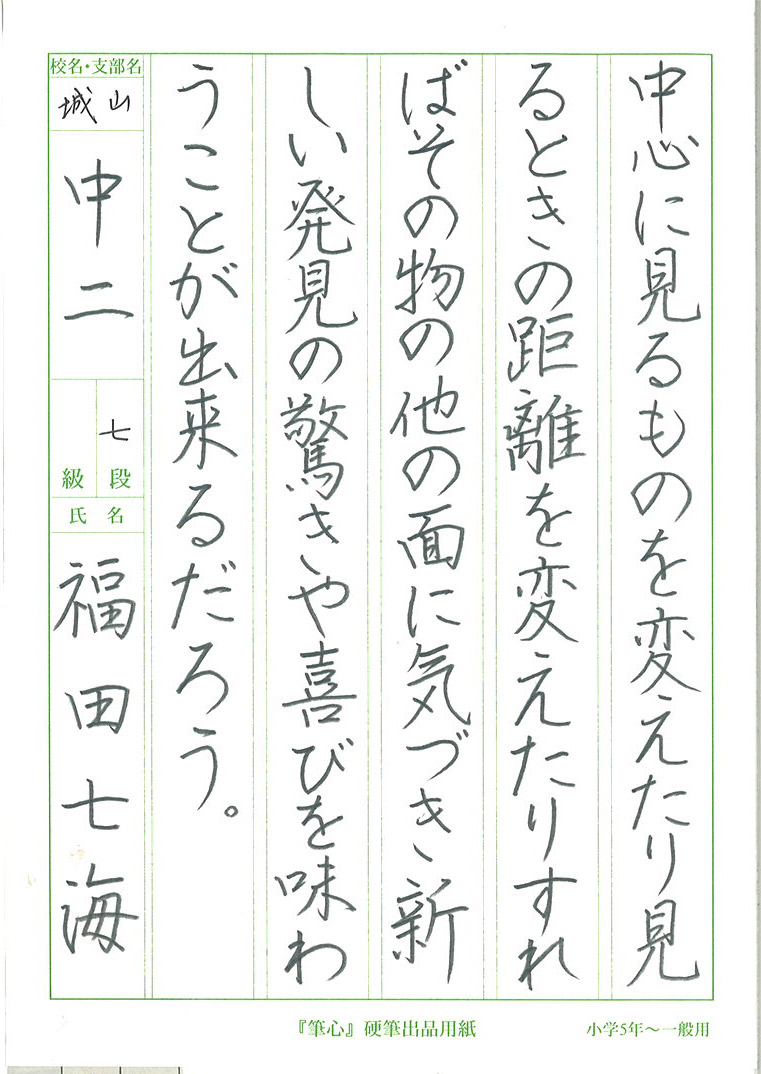 中心に見るものを変えたり見
るときの距離を変えたりすれ
ばその物の他の面に気づき新
しい発見の驚きや喜びを味わ
うことが出来るだろう。
校名・支部名
城山
中二
七
級 段
氏 名
福田七海
『筆心』硬筆出品用紙
小学5年〜一般用